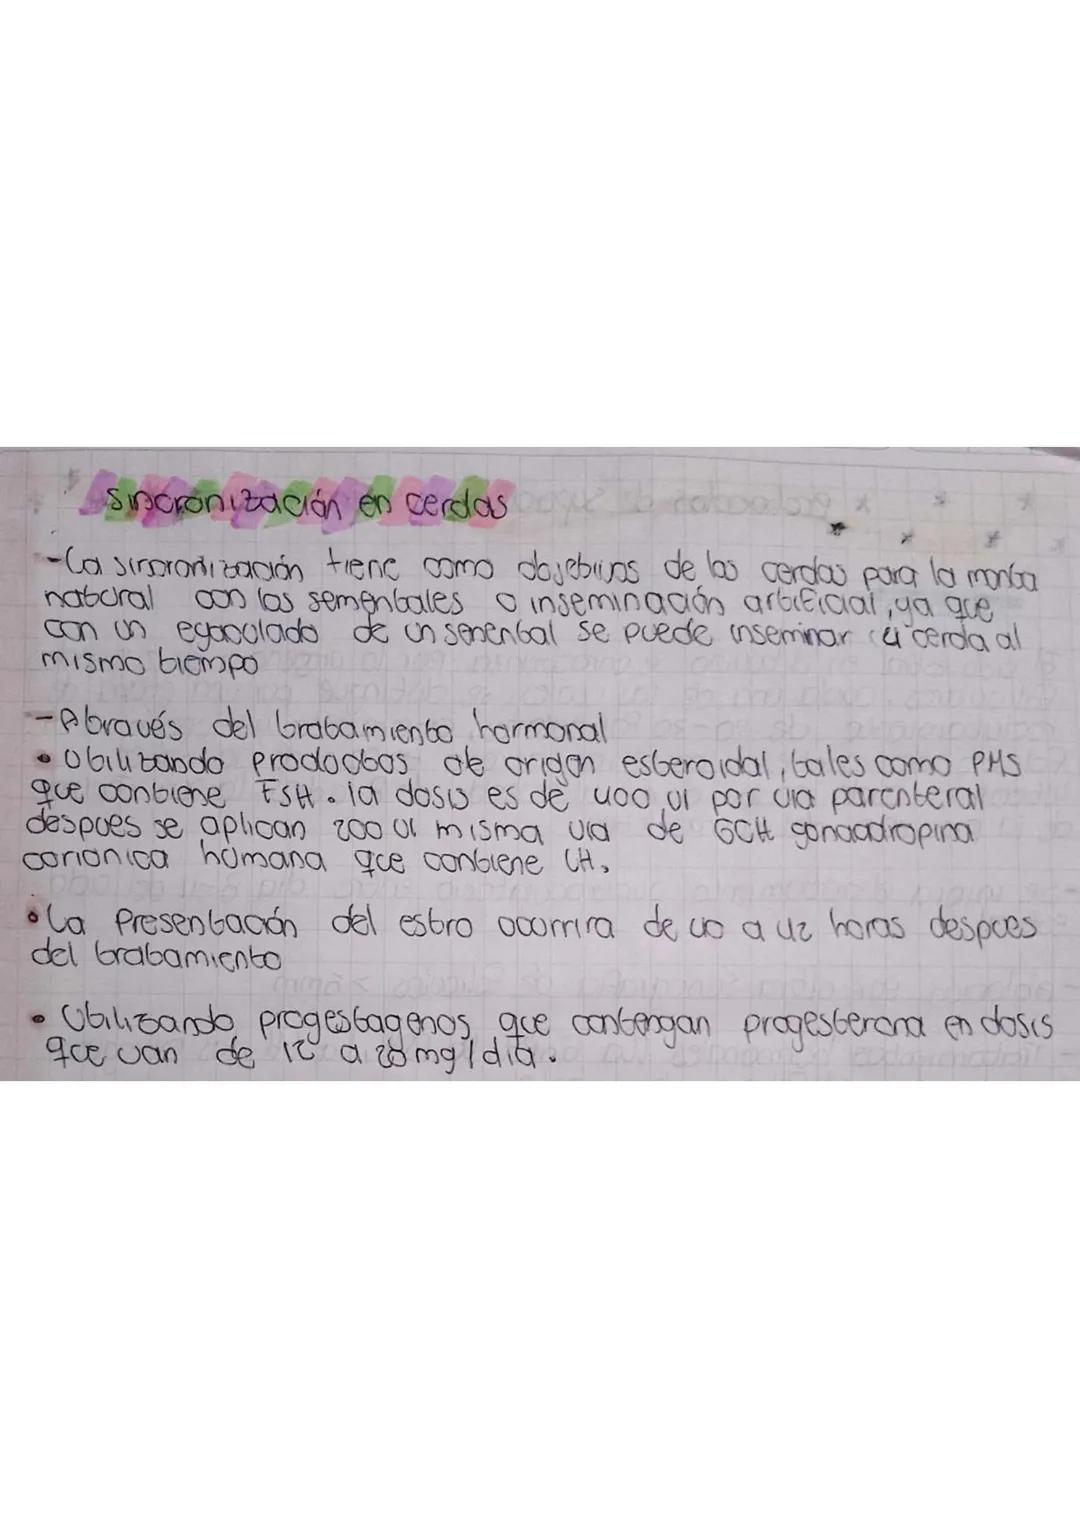 Sincronización en cerdas
-La sincronización tiene como objetivos de las cerdas para la monta
natural con los sementales o inseminación artificial, ya que
con un eyaculado de un semental se puede inseminar 4 cerda al
mismo tiempo
-A través del tratamiento hormonal
• Utilizando productos de origen esteroidal, tales como PMS
que contiene FSH. la dosis es de 400 UI por via parenteral
despues se aplican 200 UI misma via de GCH gonadropina
corionica humana que contiene LH.
• La presentación del estro ocurrira de 40 a 42 horas despues
del tratamiento
• Utilizando progestagenos que contengan progesterona en dosis
que van de 12 a 20 mg/dia.